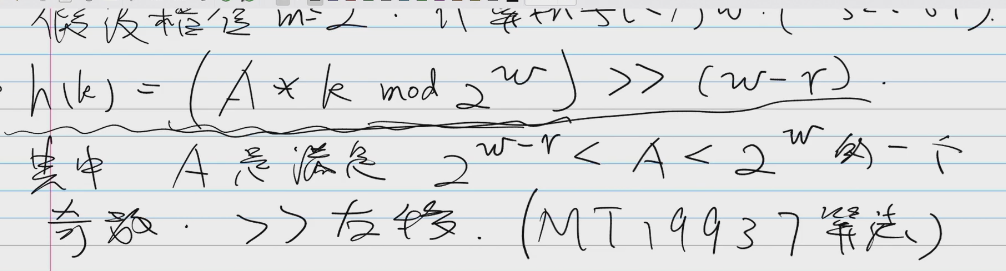 假设槽位 m=2
h(k) = (A * k mod 2^w) >> (w-r).
其中 A 是满足 2^{w-r} < A < 2^w 的一个
奇数. >> 右移. (MT19937算法)